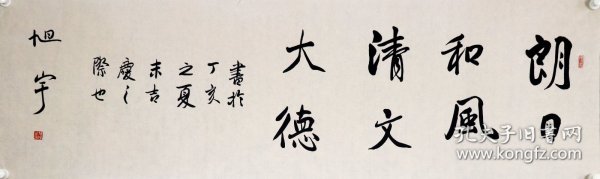 朗日
和風
清文
大德
書於
丁亥
之夏
末吉
慶之
際也
旭宇
孔夫子旧书网
www.kongfz.com